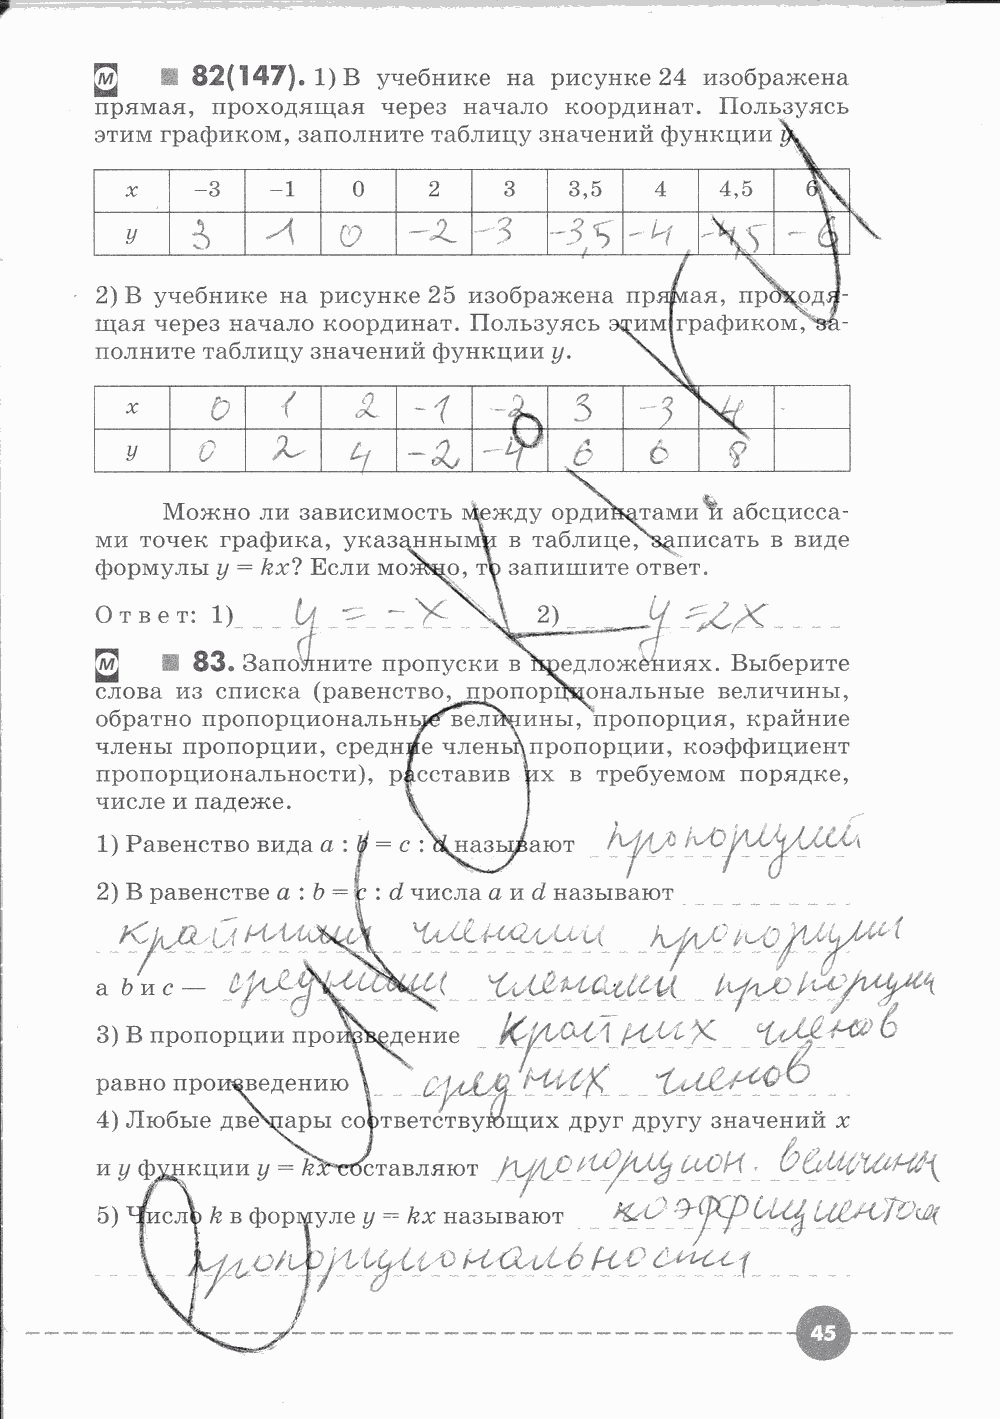 М 82(147). 1) В учебнике на рисунке 24 изображена
прямая, проходящая через начало координат. Пользуясь
этим графиком, заполните таблицу значений функции y.
x –3 –1 0 2 3 3,5 4 4,5 6
y 3 1 0 -2 -3 -3,5 -4 -4,5 -6
2) В учебнике на рисунке 25 изображена прямая, проходя-
щая через начало координат. Пользуясь этим графиком, за-
полните таблицу значений функции y.
x 0 1 2 -1 -2 3 -3 4
y 0 2 4 -2 -4 6 6 8
Можно ли зависимость между ординатами и абсцисса-
ми точек графика, указанными в таблице, записать в виде
формулы y = kx? Если можно, то запишите ответ.
Ответ: 1) y = -x 2) y = 2x
М 83. Заполните пропуски в предложениях. Выберите
слова из списка (равенство, пропорциональные величины,
обратно пропорциональные величины, пропорция, крайние
члены пропорции, средние члены пропорции, коэффициент
пропорциональности), расставив их в требуемом порядке,
числе и падеже.
1) Равенство вида a : b = c : d называют пропорцией
2) В равенстве a : b = c : d числа a и d называют
крайними членами пропорции
а b и c — средними членами пропорции
3) В пропорции произведение крайних членов
равно произведению средних членов
4) Любые две пары соответствующих друг другу значений x
и y функции y = kx составляют пропорцион. величины
5) Число k в формуле y = kx называют коэффициентом
пропорциональности
45